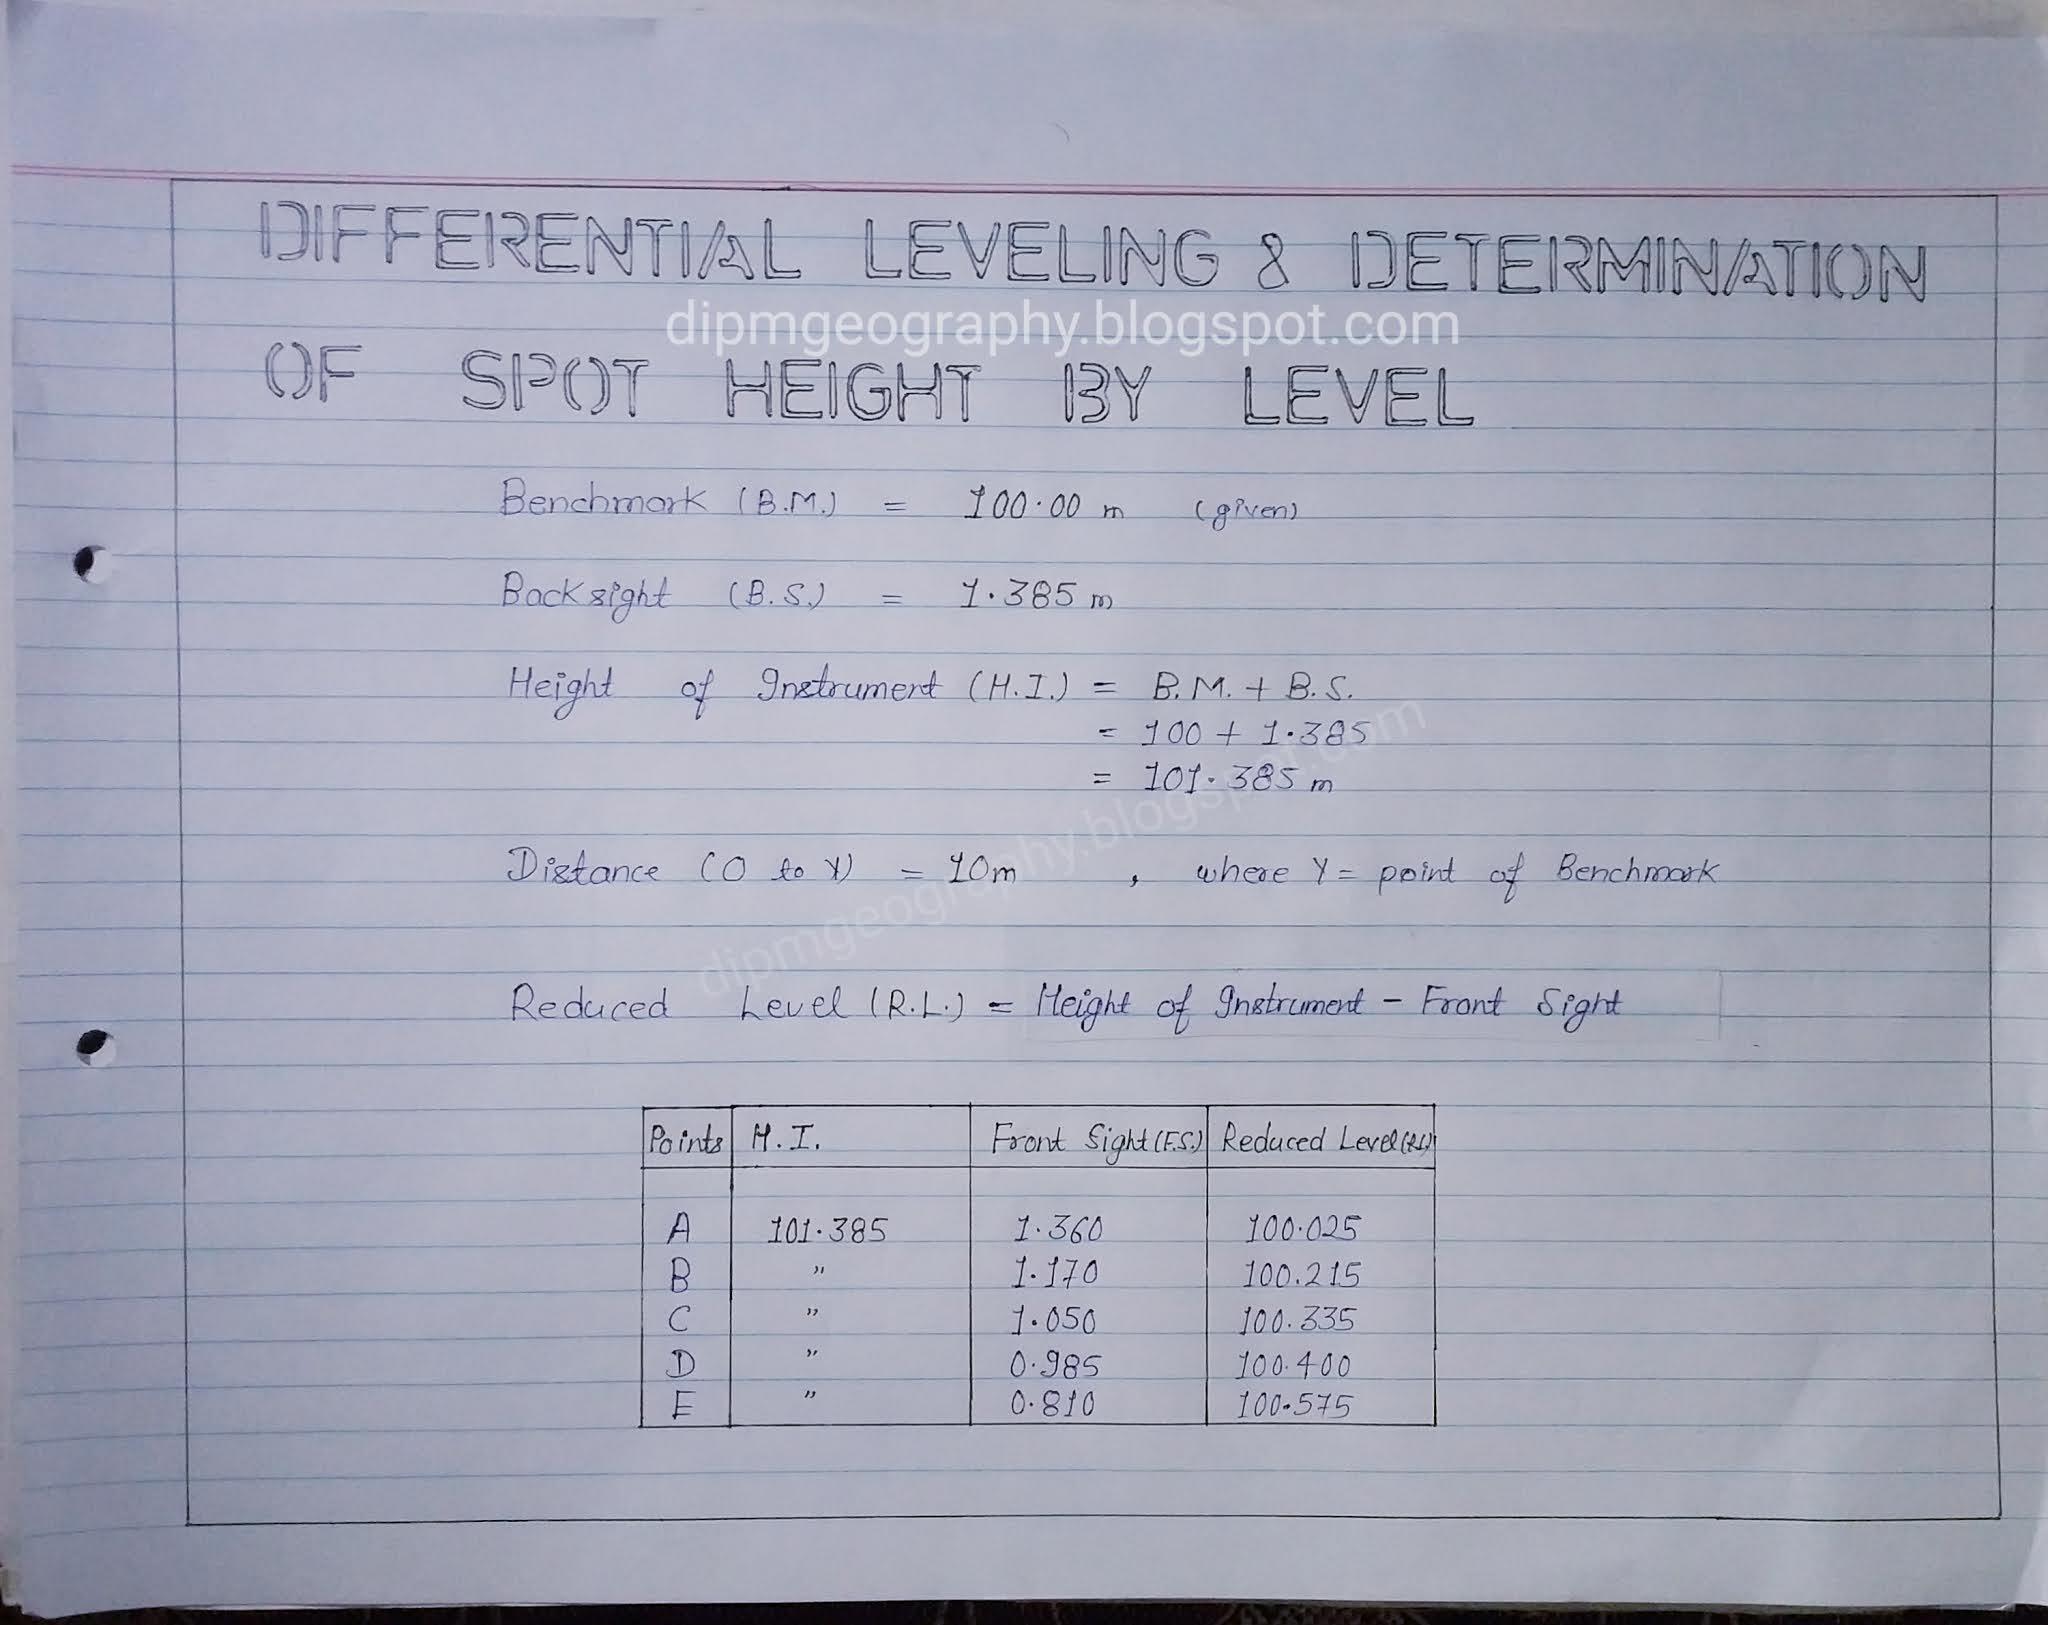 DIFFERENTIAL LEVELING & DETERMINATION
dipmgeography.blogspot.com
OF SPOT HEIGHT BY LEVEL
Benchmark (B.M.) = 100.00 m (given)
Backsight (B.S.) = 1.385 m
Height of Instrument (H.I.) = B.M. + B.S.
= 100 + 1.385
= 101.385 m
dipmgeography.blogspot.com
Distance (O to Y) = 10m , where Y = point of Benchmark
Reduced Level (R.L.) = Height of Instrument - Front Sight
Points H.I. Front Sight (F.S.) Reduced Level (RL)
A 101.385 1.360 100.025
B " 1.170 100.215
C " 1.050 100.335
D " 0.985 100.400
E " 0.810 100.575